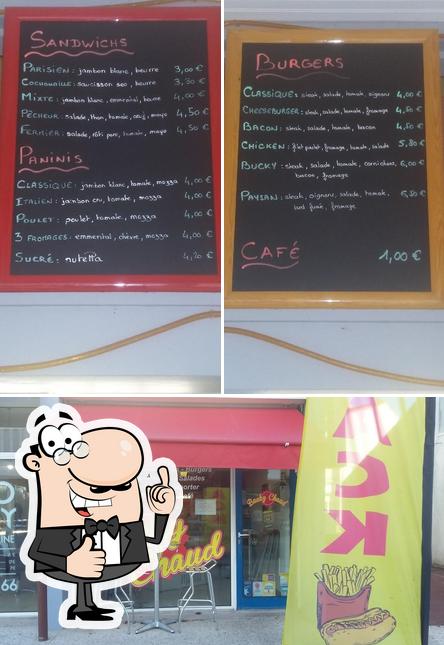 SANDWICHS
PARISIEN : jambon blanc, beurre 3,00 €
COCHONAILLE : saucisson sec, beurre 3,30 €
MIXTE : jambon blanc, emmental, beurre 4,00 €
PÊCHEUR : salade, thon, tomate, oeuf, mayo 4,50 €
FERMIER : salade, rôti porc, tomate, mayo 4,50 €
PANINIS
CLASSIQUE : jambon blanc, tomate, mozza 4,00 €
ITALIEN : jambon cru, tomate, mozza 4,00 €
POULET : poulet, tomate, mozza 4,00 €
3 FROMAGES : emmental, chèvre, mozza 4,00 €
SUCRÉ : nutella
BURGERS
CLASSIQUE : steak, salade, tomate, oignons 4,00 €
CHEESEBURGER : steak, salade, tomate, fromage 4,50 €
BACON : steak, salade, tomate, bacon 4,50 €
CHICKEN : filet poulet, fromage, tomate, salade 5,80 €
BUCKY : steak, salade, tomate, cornichons, 6,00 €
bacon, fromage
PAYSAN : steak, oignons, salade, tomate,
lard fumé, fromage
CAFÉ 1,00 €
Burgers
Salades
Chaud
Bucky Chaud
66